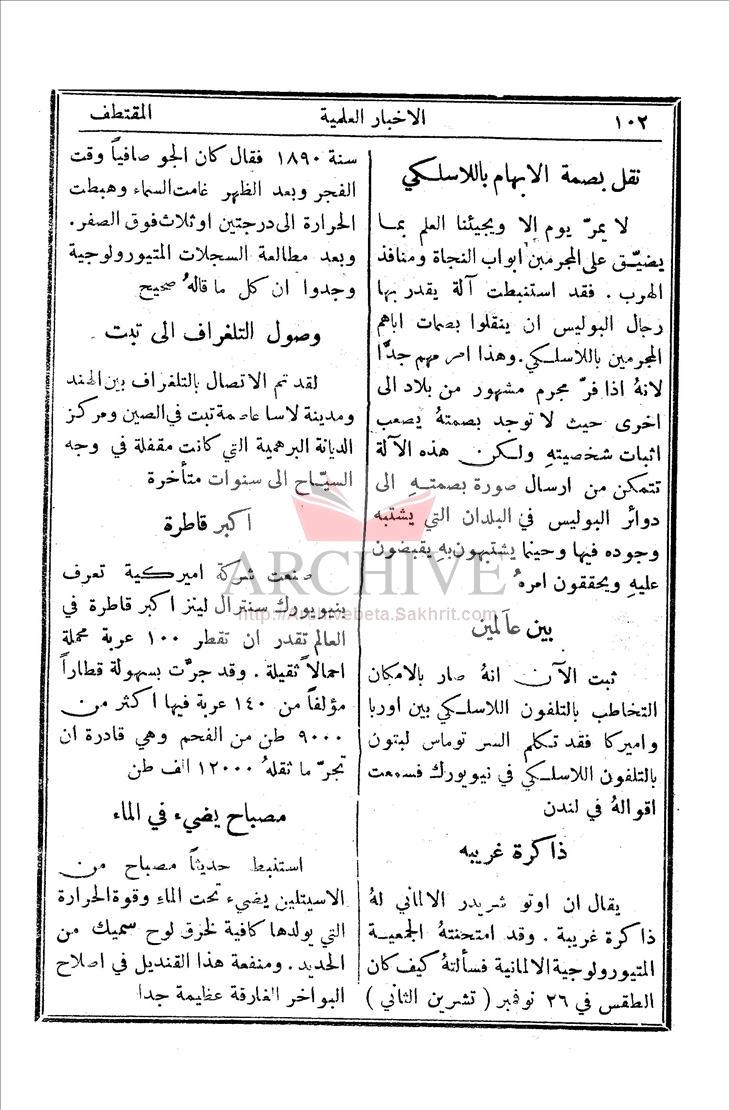 ١٠٢ الاخبار العلمية المقتطف
نقل بصمة الابهام باللاسلكي
لا يمرّ يوم الا ويجيئنا العلم بما
يضيّق على المجرمين ابواب النجاة ومنافذ
الهرب . فقد استنبطت آلة يقدر بها
رجال البوليس ان ينقلوا بصمات اباهم
المجرمين باللاسلكي. وهذا امر مهم جدًّا
لانهُ اذا فرّ مجرم مشهور من بلاد الى
اخرى حيث لا توجد بصمتهُ يصعب
اثبات شخصيتهِ ولكن هذه الآلة
تتمكن من ارسال صورة بصمتهِ الى
دوائر البوليس في البلدان التي يشتبه
وجوده فيها وحينما يشتبهون بهِ يقبضون
عليهِ ويحققون امرهُ
بين عالَمين
ثبت الآن انهُ صار بالامكان
التخاطب بالتلفون اللاسلكي بين اوربا
واميركا فقد تكلم السر توماس لبتون
بالتلفون اللاسلكي في نيويورك فسمعت
اقوالهُ في لندن
ذاكرة غريبه
يقال ان اوتو شريدر الالماني لهُ
ذاكرة غريبة . وقد امتحنتهُ الجمعية
المتيورولوجية الالمانية فسألتهُ كيف كان
الطقس في ٢٦ نوفمبر ( تشرين الثاني )
سنة ١٨٩٠ فقال كان الجو صافياً وقت
الفجر وبعد الظهر غامت السماء وهبطت
الحرارة الى درجتين او ثلاث فوق الصفر.
وبعد مطالعة السجلات المتيورولوجية
وجدوا ان كل ما قالهُ صحيح
وصول التلغراف الى تبت
لقد تم الاتصال بالتلغراف بين الهند
ومدينة لاسا عاصمة تبت في الصين ومركز
الديانة البرهمية التي كانت مقفلة في وجه
السيّاح الى سنوات متأخرة
اكبر قاطرة
صنعت شركة اميركية تعرف
بنيويورك سنترال لينز اكبر قاطرة في
العالم تقدر ان تقطر ١٠٠ عربة محملة
احمالاً ثقيلة . وقد جرّت بسهولة قطاراً
مؤلفاً من ١٤٠ عربة فيها اكثر من
٩٠٠٠ طن من الفحم وهي قادرة ان
تجرّ ما ثقلهُ ١٢٠٠٠ الف طن
مصباح يضيء في الماء
استنبط حديثاً مصباح من
الاسيتلين يضيء تحت الماء وقوة الحرارة
التي يولدها كافية لخرق لوح سميك من
الحديد . ومنفعة هذا القنديل في اصلاح
البواخر الغارقة عظيمة جدا
ARCHIVE
http://Archivebeta.Sakhrit.com